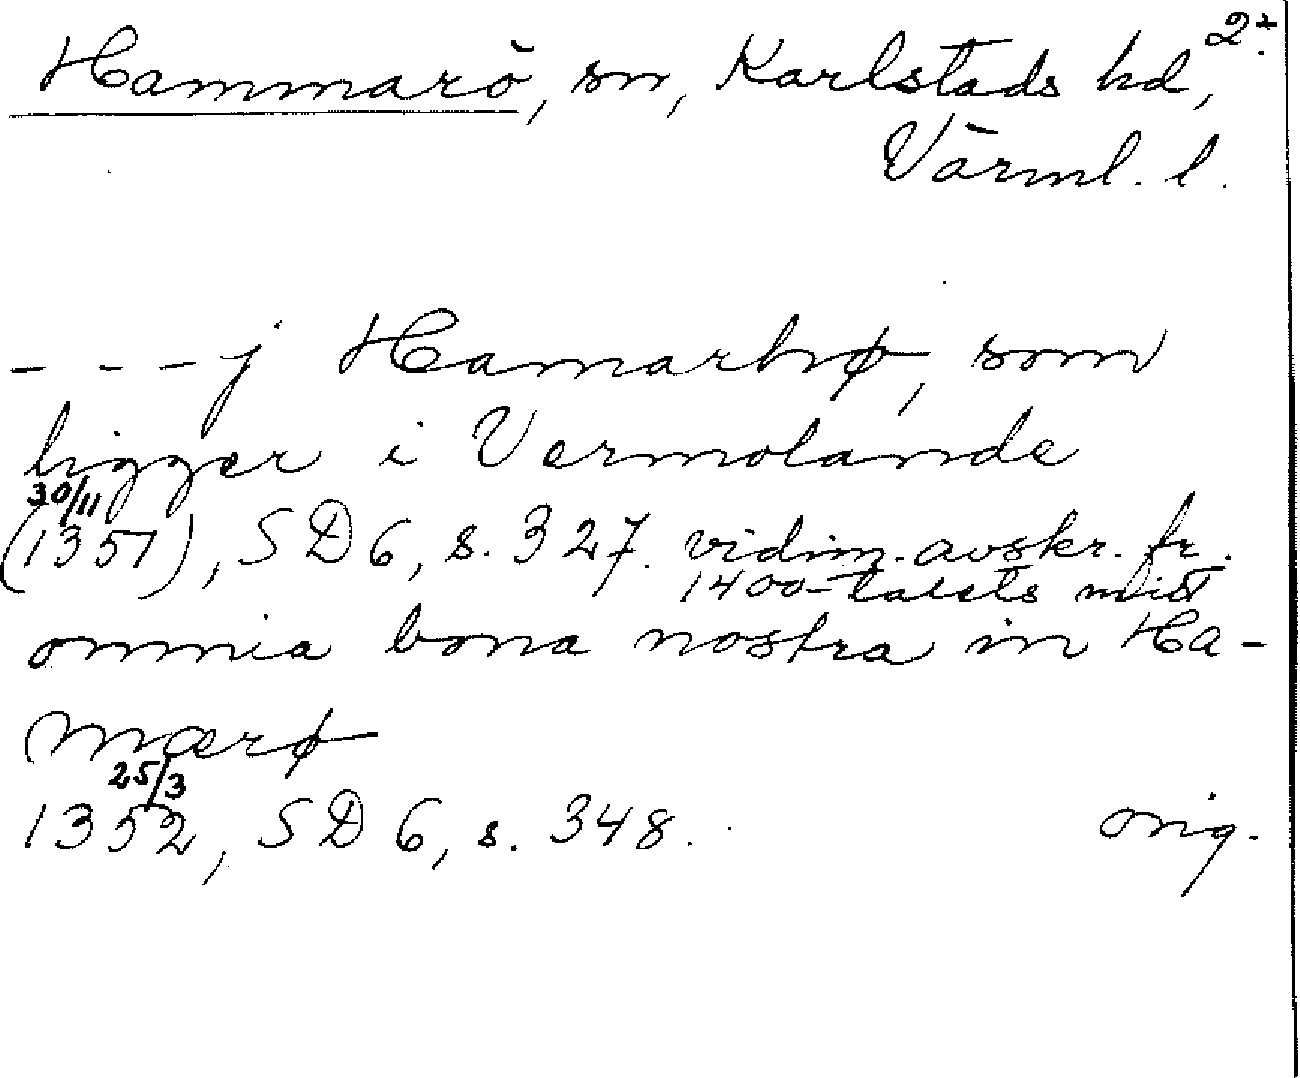 2:
Hammarö, sn, Karlstads hd,
Värml. l.
- - - j Hamarhø, som
ligger i Vermolande
30/11
(1351), SD 6, s. 327. vidim. avskr. fr.
1400-talets mitt
omnia bona nostra in Ha-
mærø
25/3
1352, SD 6, s. 348. orig.